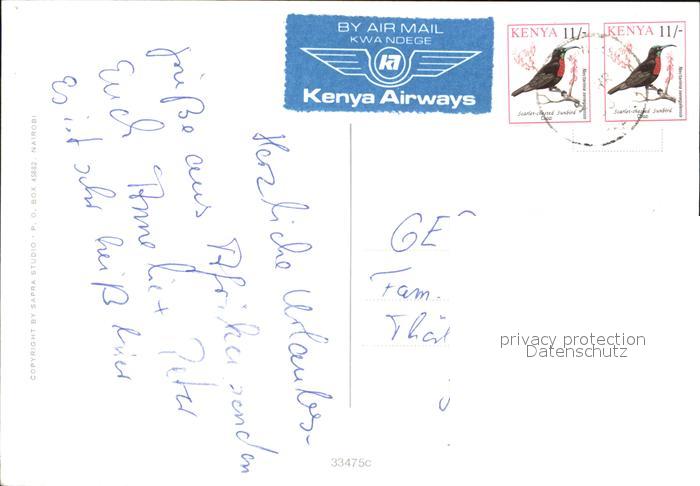 BY AIR MAIL
KWA NDEGE
Kenya Airways
KENYA 11/-
Scarlet-chested Sunbird
Nectarinia senegalensis
KENYA 11/-
Scarlet-chested Sunbird
Nectarinia senegalensis
Herzliche Urlaubs-
grüße aus Afrika senden
Euch Anneliese + Peter
Es ist sehr heiß hier
GE
Fam.
privacy protection
Datenschutz
COPYRIGHT BY SAPRA STUDIO · P. O. BOX 45882, NAIROBI
33475c